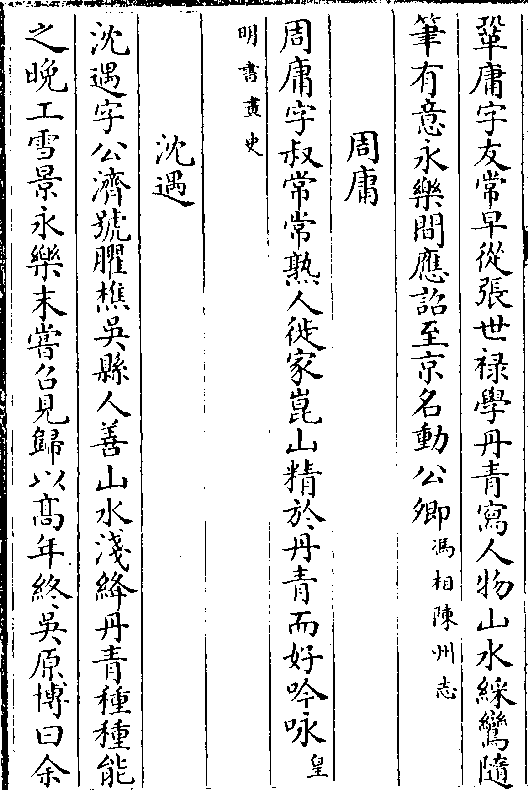 鞏庸字友常早從張世禄學丹青寫人物山水綵鸞隨
筆有意永樂間應詔至京名動公卿馮相陳州志
周庸
周庸字叔常常熟人徙家崑山精於丹青而好吟咏皇
明書畫史
沈遇
沈遇字公濟號臞樵吳縣人善山水淺絳丹青種種能
之晚工雪景永樂末嘗召見歸以高年終吳原博曰余